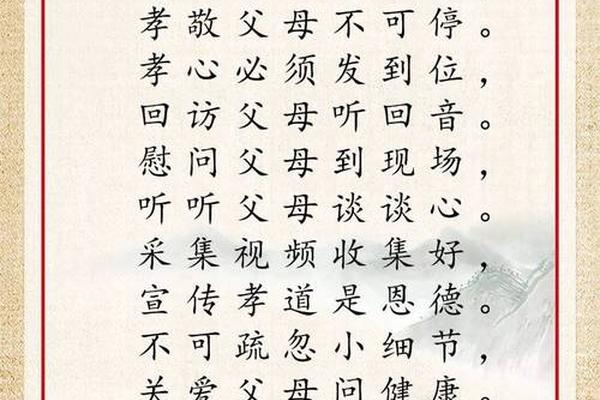 孝敬父母不可停。
孝心必须发到位，
回访父母听回音。
慰问父母到现场，
听听父母谈谈心。
采集视频收集好，
宣传孝道是恩德。
不可疏忽小细节，
关爱父母问健康。